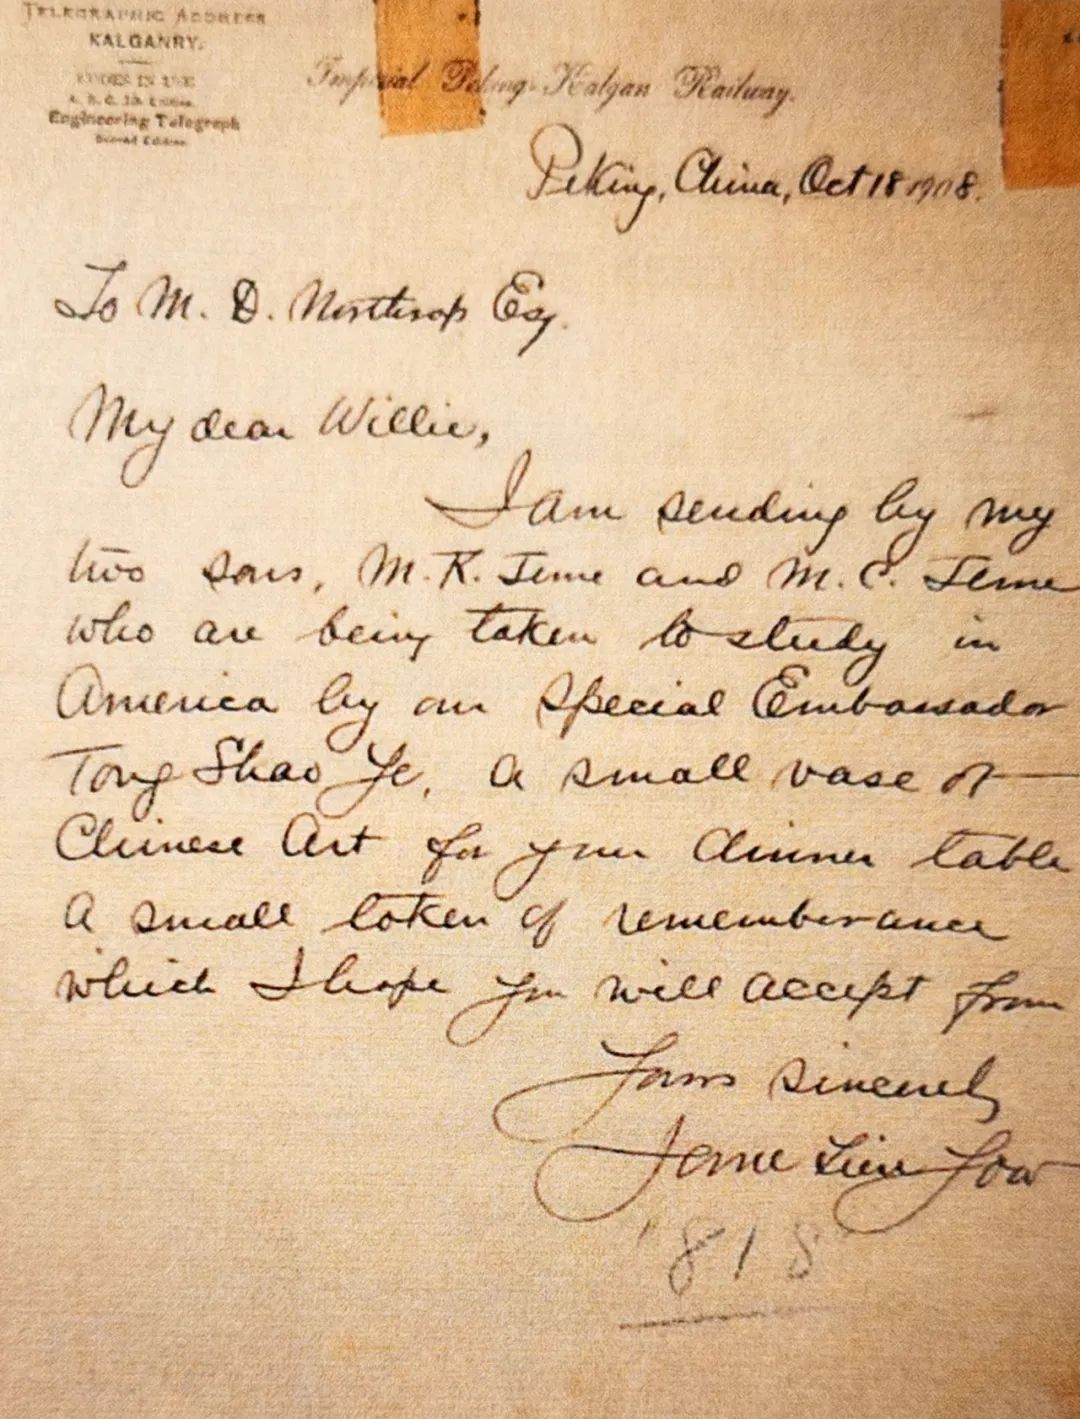 TELEGRAPHIC ADDRESS
KALGANRY.
CODES IN USE
A. B. C. 5th Edition
Engineering Telegraph
Second Edition
Imperial Peking-Kalgan Railway.
Peking, China, Oct 18 1908.
To M. D. Northrop Esq.
My dear Willie,
I am sending by my
two sons, M. K. Jeme and M. C. Jeme
who are being taken to study in
America by our Special Embassador
Tong Shao Ye, a small vase of
Chinese Art for your dinner table
a small token of rememberance
which I hope you will accept from
Yours sincerely
Jeme Tien Yow
"818"